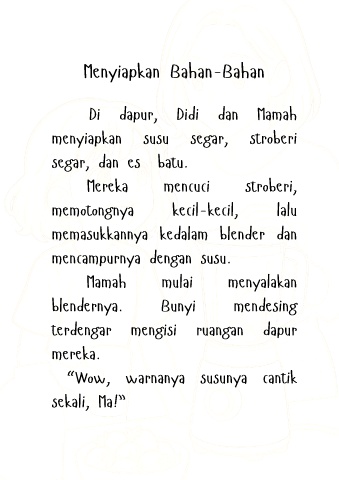 Menyiapkan Bahan-Bahan
Di dapur, Didi dan Mamah
menyiapkan susu segar, stroberi
segar, dan es batu.
Mereka mencuci stroberi,
memotongnya kecil-kecil, lalu
memasukkannya kedalam blender dan
mencampurnya dengan susu.
Mamah mulai menyalakan
blendernya. Bunyi mendesing
terdengar mengisi ruangan dapur
mereka.
“Wow, warnanya susunya cantik
sekali, Ma!”